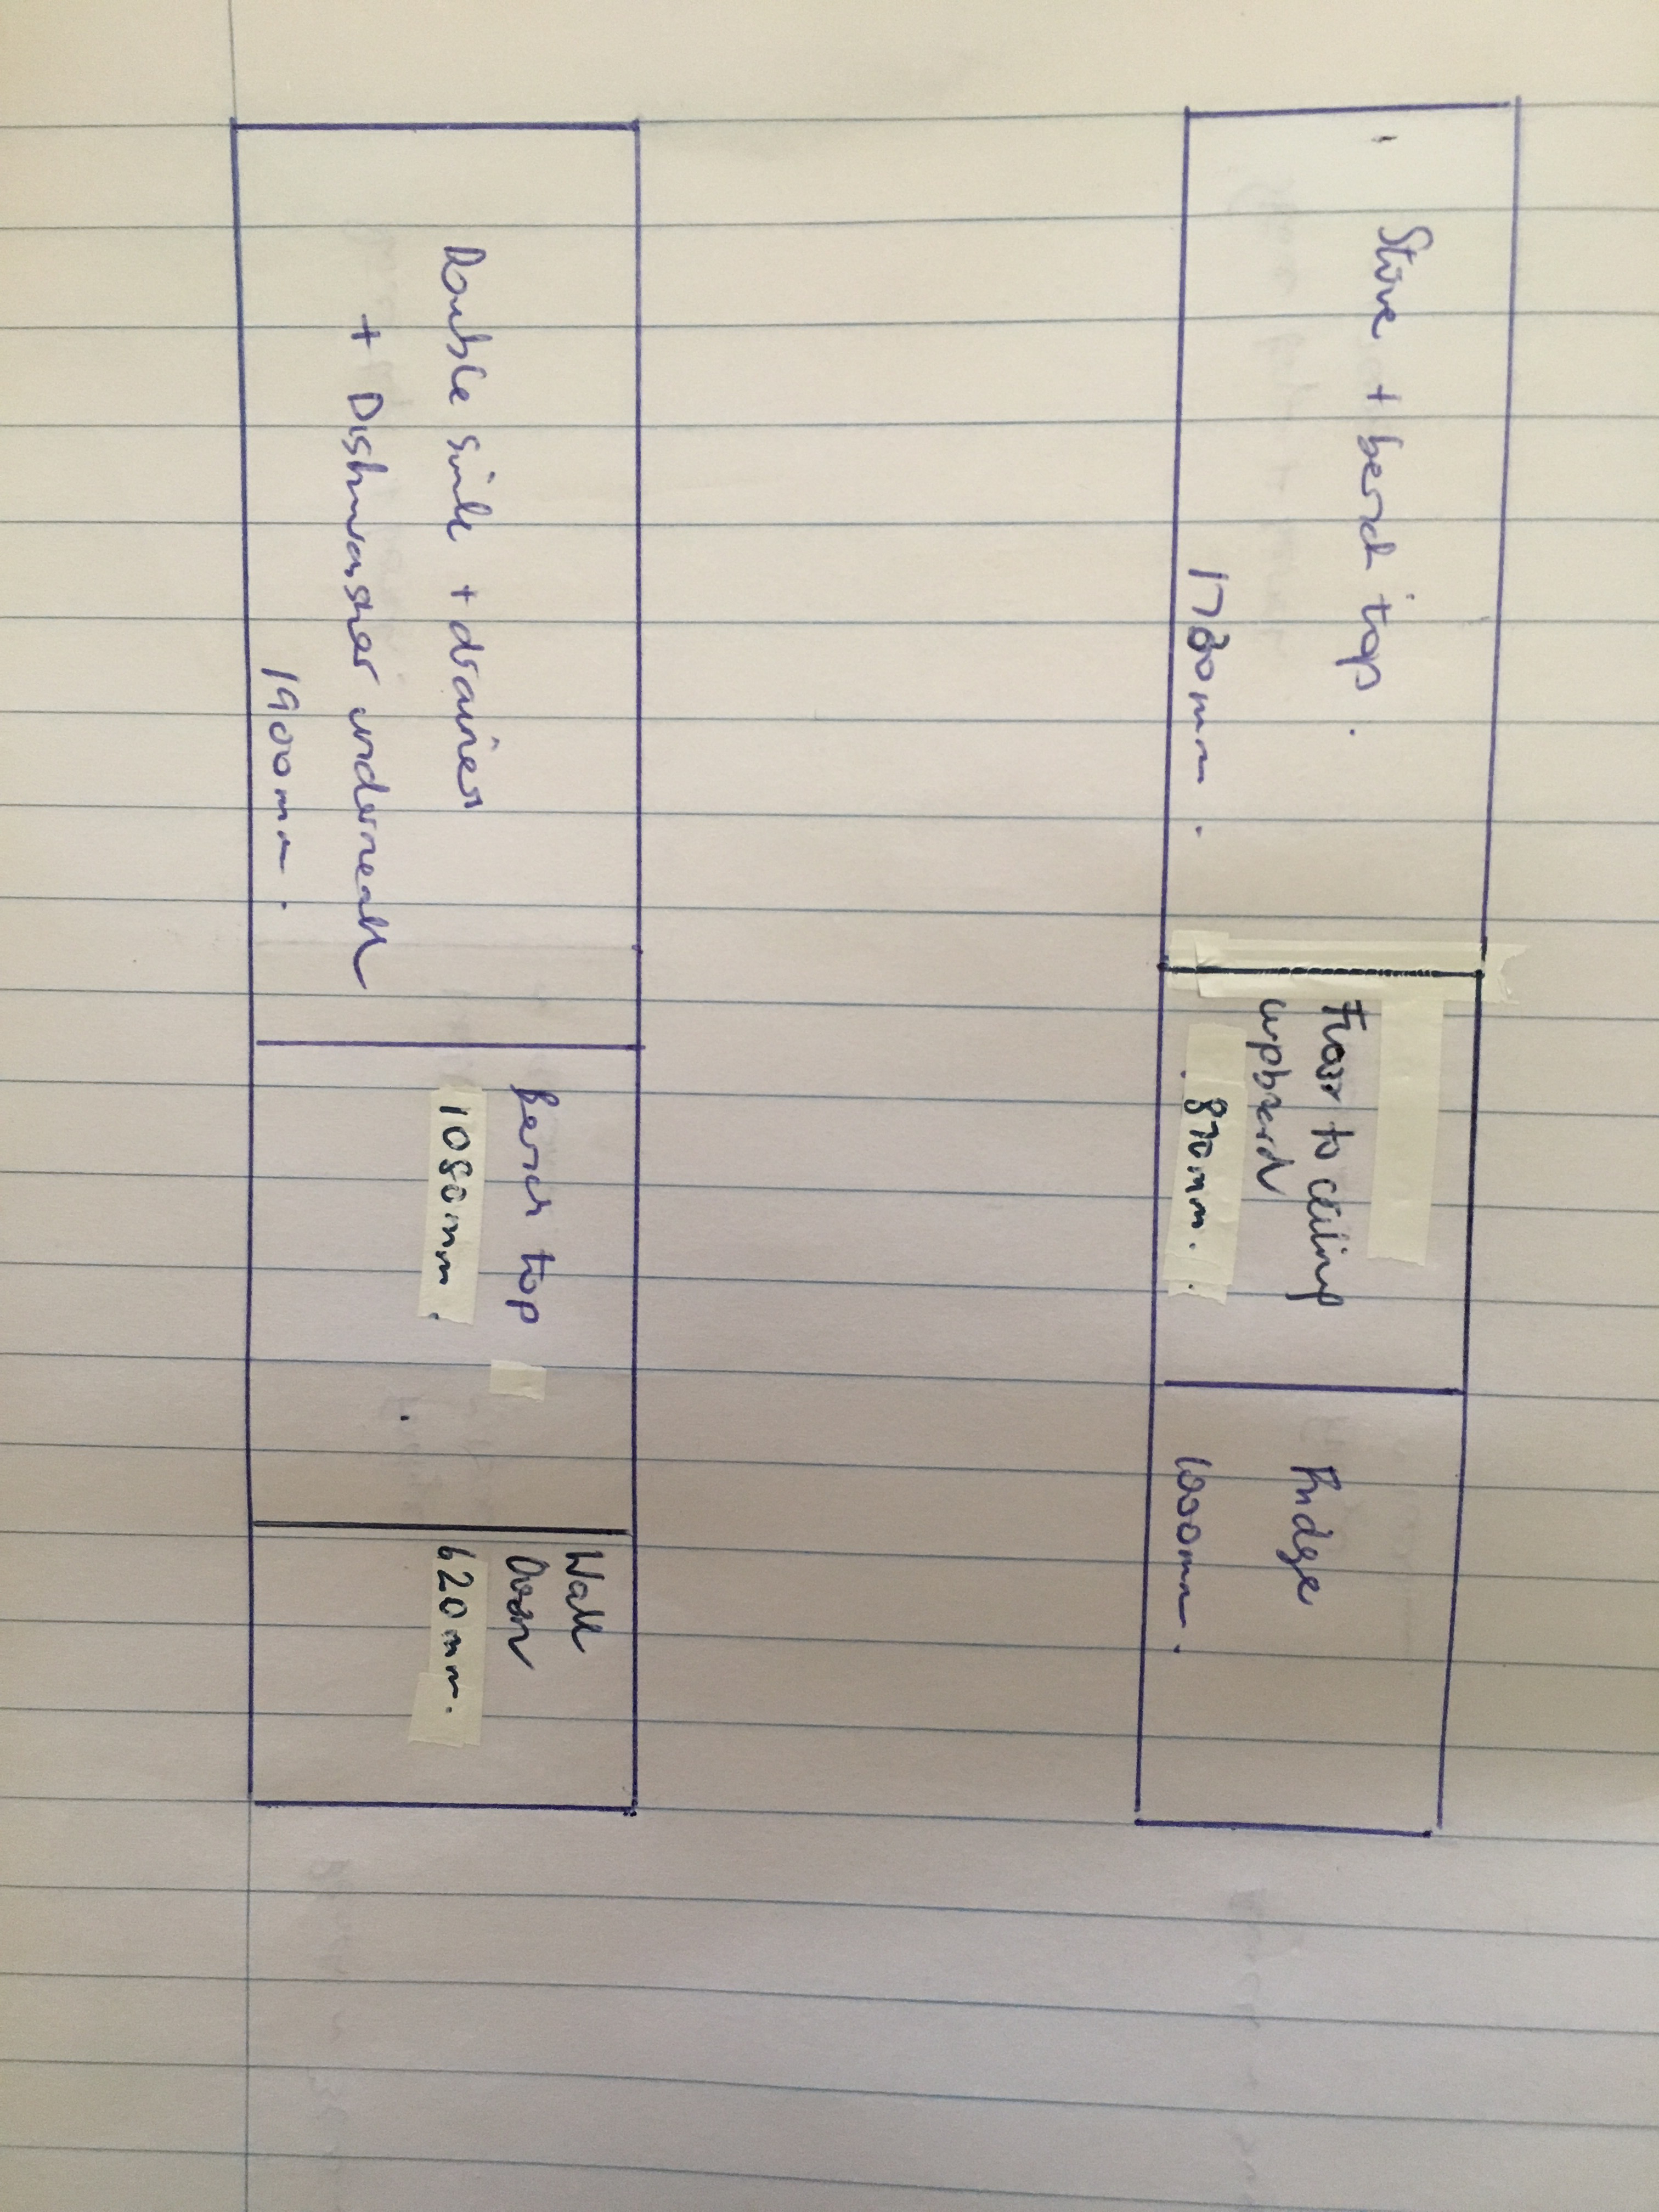 Stove + bench top.
1780mm.
Floor to ceiling
cupboard
870mm.
Fridge
1000mm.
Double sink + drainer
+ Dishwasher underneath
1900mm.
Bench top
1080mm.
Wall
Oven
620mm.